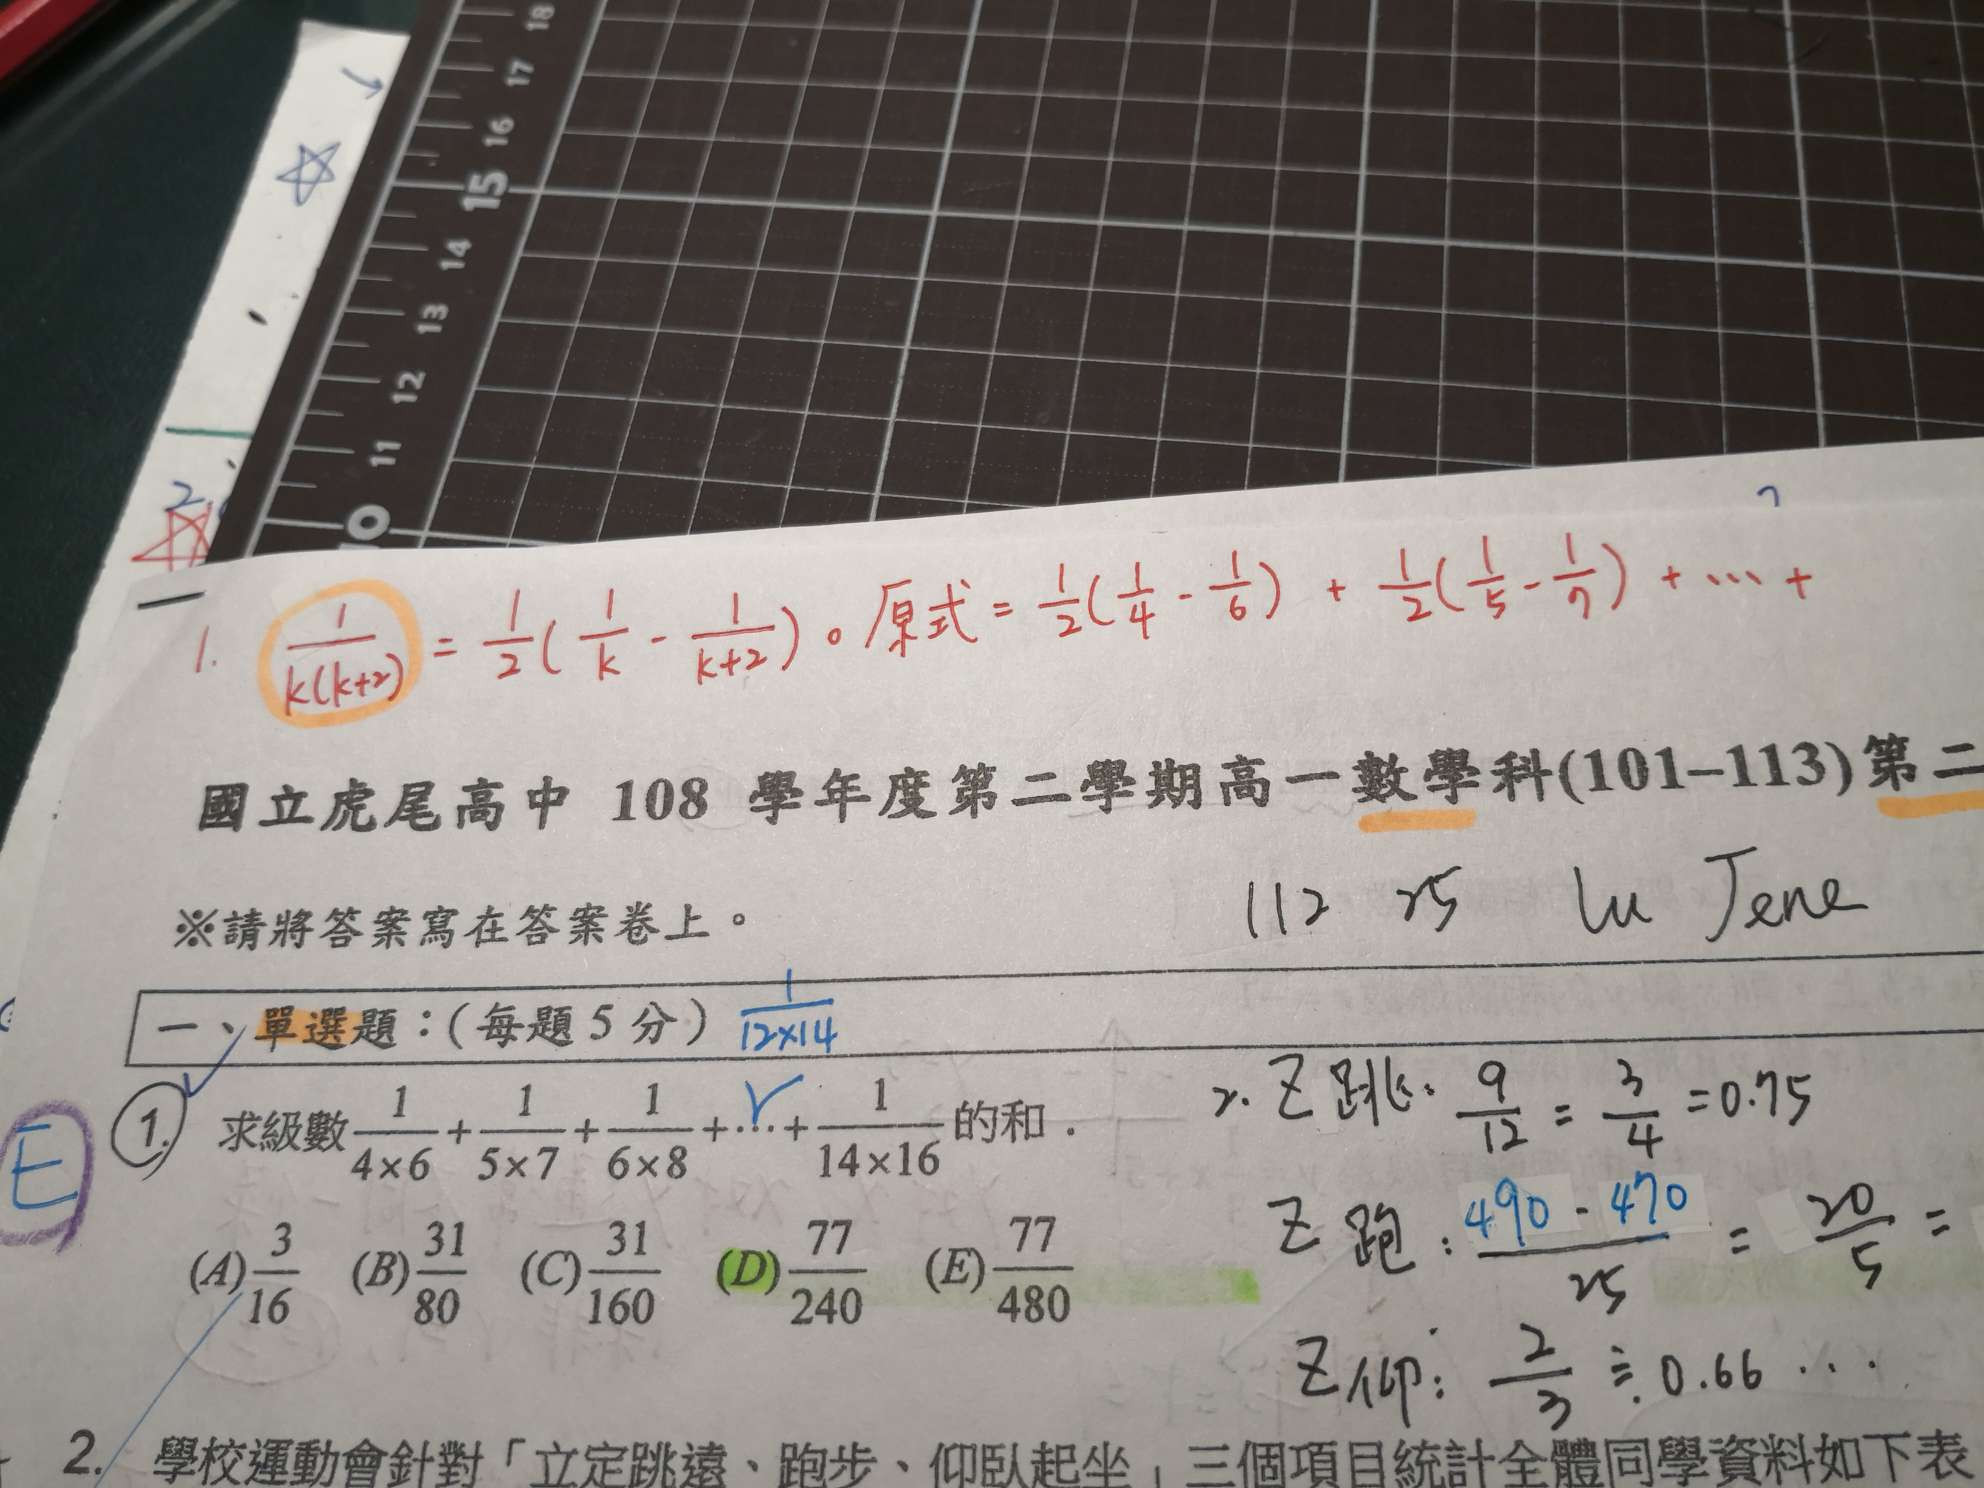 18
17
16
15
14
13
12
11
10
2.
1. 1/k(k+2) = 1/2(1/k - 1/k+2)。原式 = 1/2(1/4 - 1/6) + 1/2(1/5 - 1/7) + … +
國立虎尾高中 108 學年度第二學期高一數學科(101–113)第二
※請將答案寫在答案卷上。
112 25 Lu Jene
一、單選題:(每題 5 分) 1/12×14
E
1. 求級數 1/4×6 + 1/5×7 + 1/6×8 + … + 1/14×16 的和.
(A) 3/16 (B) 31/80 (C) 31/160 (D) 77/240 (E) 77/480
2. Z跳: 9/12 = 3/4 = 0.75
Z跑: 490 - 470/25 = 20/5 =
Z仰: 2/3 ≒ 0.66 ...
2. 學校運動會針對「立定跳遠、跑步、仰臥起坐」三個項目統計全體同學資料如下表